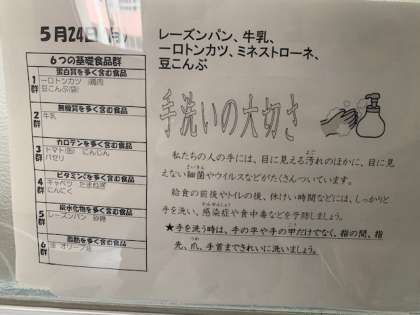 5月24日
6つの基礎食品群
1群
蛋白質を多く含む食品
一ロトンカツ 鶏肉
豆こんぶ(袋)
2群
無機質を多く含む食品
牛乳
3群
カロテンを多く含む食品
トマト(缶) にんじん
パセリ
4群
ビタミンCを多く含む食品
キャベツ たまねぎ
にんにく
5群
炭水化物を多く含む食品
レーズンパン 砂糖
6群
脂肪を多く含む食品
油 オリーブ油
レーズンパン、牛乳、
一ロトンカツ、ミネストローネ、
豆こんぶ
手洗いの大切さ
私たちの人の手には、目に見える汚れのほかに、目に見
えない細菌やウイルスなどがたくさんついています。
給食の前後やトイレの後、休けい時間などには、しっかりと
手を洗い、感染症や食中毒などを予防しましょう。
★手を洗う時は、手の平や手の甲だけでなく、指の間、指
先、爪、手首まできれいに洗いましょう。